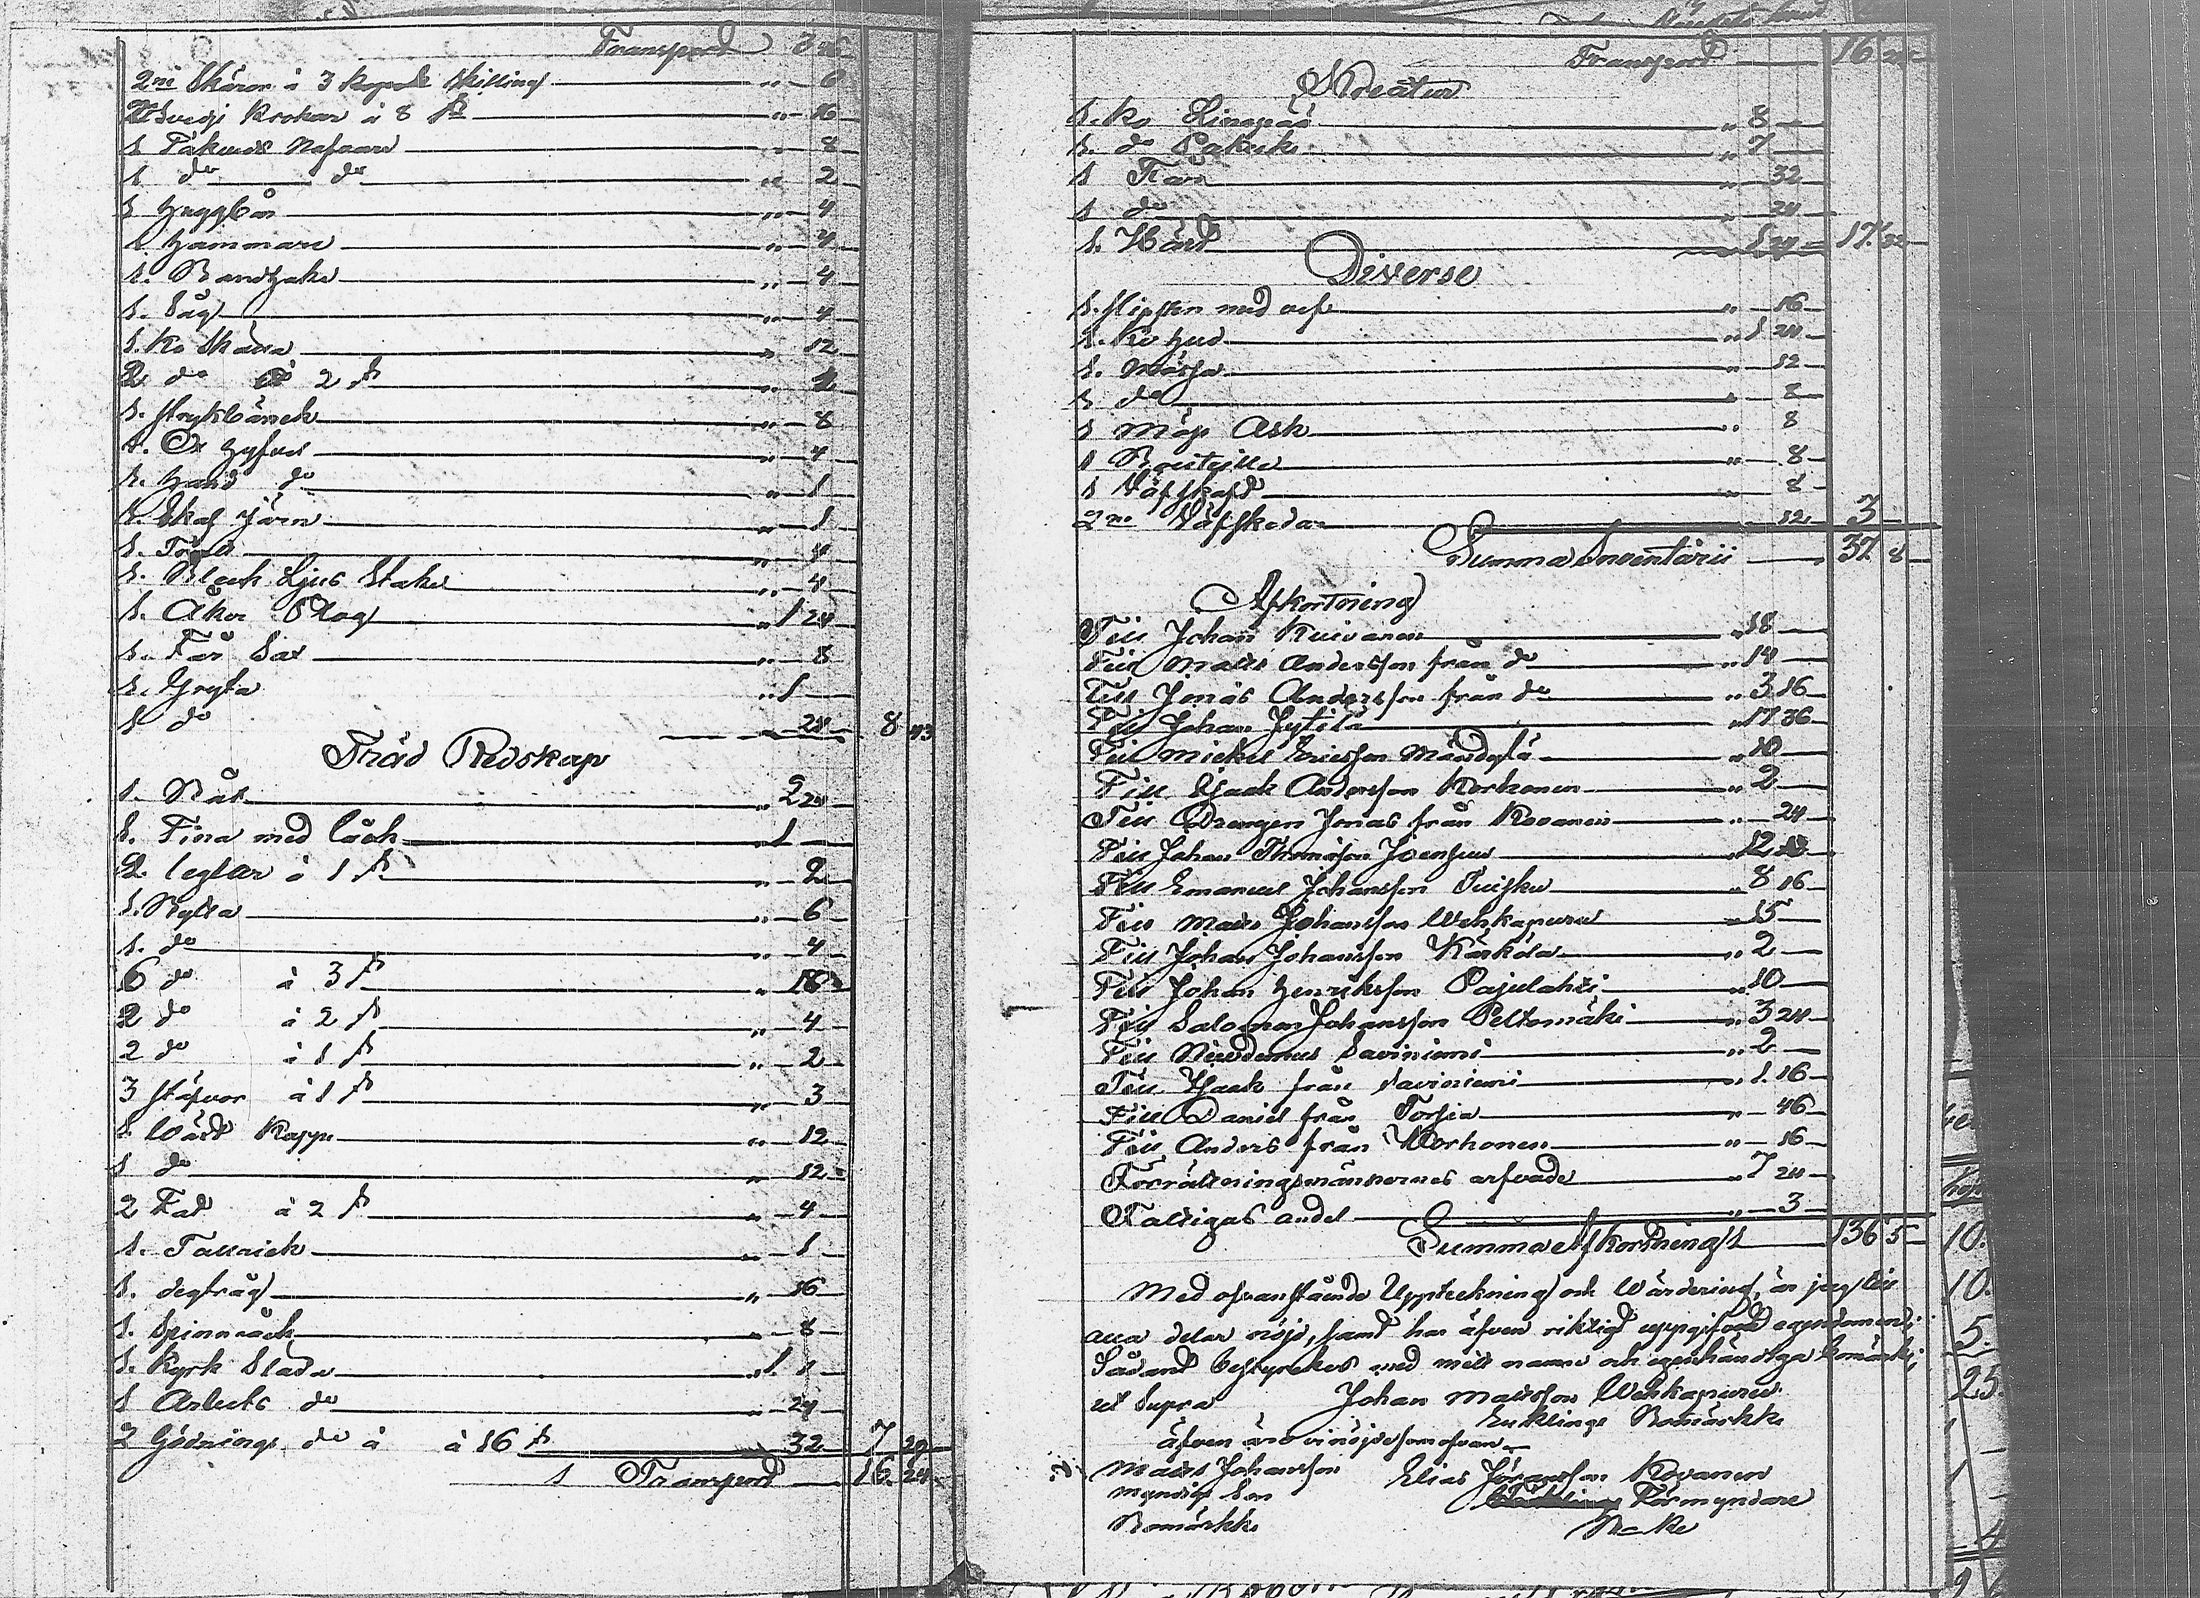 Transport 3 46
2ne Skäror à 3 kopek Skilling „ 6
2 Svegj Krokar à 8 s „ 16
1 Takuds Nafvare „ 8
1 do do „ 2
1 Huggbår „ 4
1 Hammare „ 4
1. Bandhake „ 4
1. Såg „ 4
1. Ko Skälla „ 12
2 do à 2 s „ 4
1. Strykbänck „ 8
1. Ox Hyfvel „ 4
1. Hand do „ 1
1. Skaf järn „ 1
1. „ 4
1. Bleck Ljus Stake „ 4
1. Åker Plog „ 1 24
1. Får Sax „ 8
1. Gryta „ 1
1 do 24 8 43
Träd Redskap
1. Båt „ 2 24
1. Tina med låck „ 1
2. leglar à 1 s „ 2
1. Bytta „ 6
1. do „ 4
6 do à 3 s „ 18
2 do à 2 s „ 4
2 do à 1 s „ 2
3 stäfvor à 1 s „ 3
1 Wärt Kappe „ 12
1 do „ 12
2 Fat à 2 s „ 4
1. Tallrick „ 1
1. degtråg „ 16
1. Spinnråck „ 8
1. Kyrk Släda „ 1
1 Arbets do „ 24
2 Gödnings do à à 16 s 32 7 29
Transport 16. 24
Transport 16 24
Kreatur
1. Ko Hinopää „ 8
1. do Pakuk „ 7
1 Får „ 32
1 do „ 24
1. Häst „ 1 24 17. 32
Diverse
1. Slipsten med vef „ 16
1. Ko Hud „ 1 24
1. Mössa „ 12
1 do „ 8
1 Mäss Ask „ 8
1 Bouteille „ 8
1 Väfskaft „ 8
2ne Väfskedar 12 3
Summa Inventarii 37 8
Afkortning
Till Johan Kuivanen „ 18
Till Matts Andersson från do „ 14
Till Jonas Andersson från do „ 3 16
Till Johan Jytilä „ 17 36
Till Mickel Ericsson Mändylä „ 10
Till Isack Andersson Korhonen „ 2
Till Drengen Jonas från Kovanen „ 24
Till Johan Thomasson Joensuu „ 12
Till Emanuel Johansson Tuisku „ 8 16
Till Matts Johansson Wehkapuro „ 15
Till Johan Johansson Kärkälä „ 2
Till Johan Henriksson Pajulahti „ 10
Till Salomon Johansson Peltomäki „ 3 24
Till Nicodemus Saviniemi „ 2
Till Isack från Saviniemi „ 1. 16
Till Daniel från Torsia „ 46
Till Anders från Korhonen „ 16
Förrättningsmännernes arfvode „ 7 24
Fattigas andel „ 3
Summa Afkortning 136 5
Med ofvanstående Uppteckning och Wärdering, är jag till
alla delar nöjd, samt har äfven riktigt uppgifvit egendomen;
Sådant bestyrckes med mitt namn och egenhändiga bomärke;
ut Supra Johan Mattsson Wehkapuro
Enklings Bomärkke
äfven äro vi nöjde som ofvan
Matts Johansson Elias Jöransson Kovanen
myndige Son Förmyndare
Bomärkke